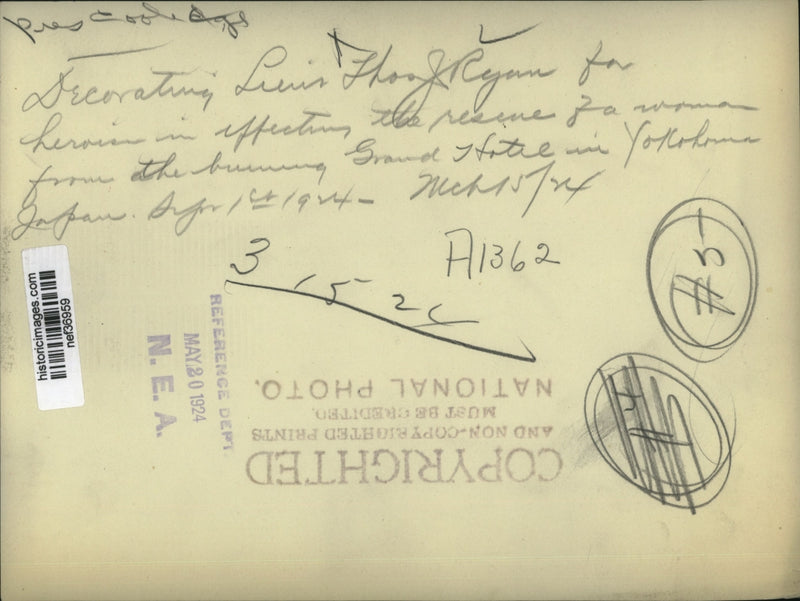 Pres Coolidge
Decorating Lieut Thos J Ryan for
heroism in effecting the rescue of a woman
from the burning Grand Hotel in Yokohoma
Japan. Sept 1st 1924 - Mch 15/24
3 15 24
A1362
#5
#4
historicimages.com
nef36959
REFERENCE DEPT
MAY 20 1924
N. E. A.
COPYRIGHTED
AND NON-COPYRIGHTED PRINTS
MUST BE CREDITED.
NATIONAL PHOTO.